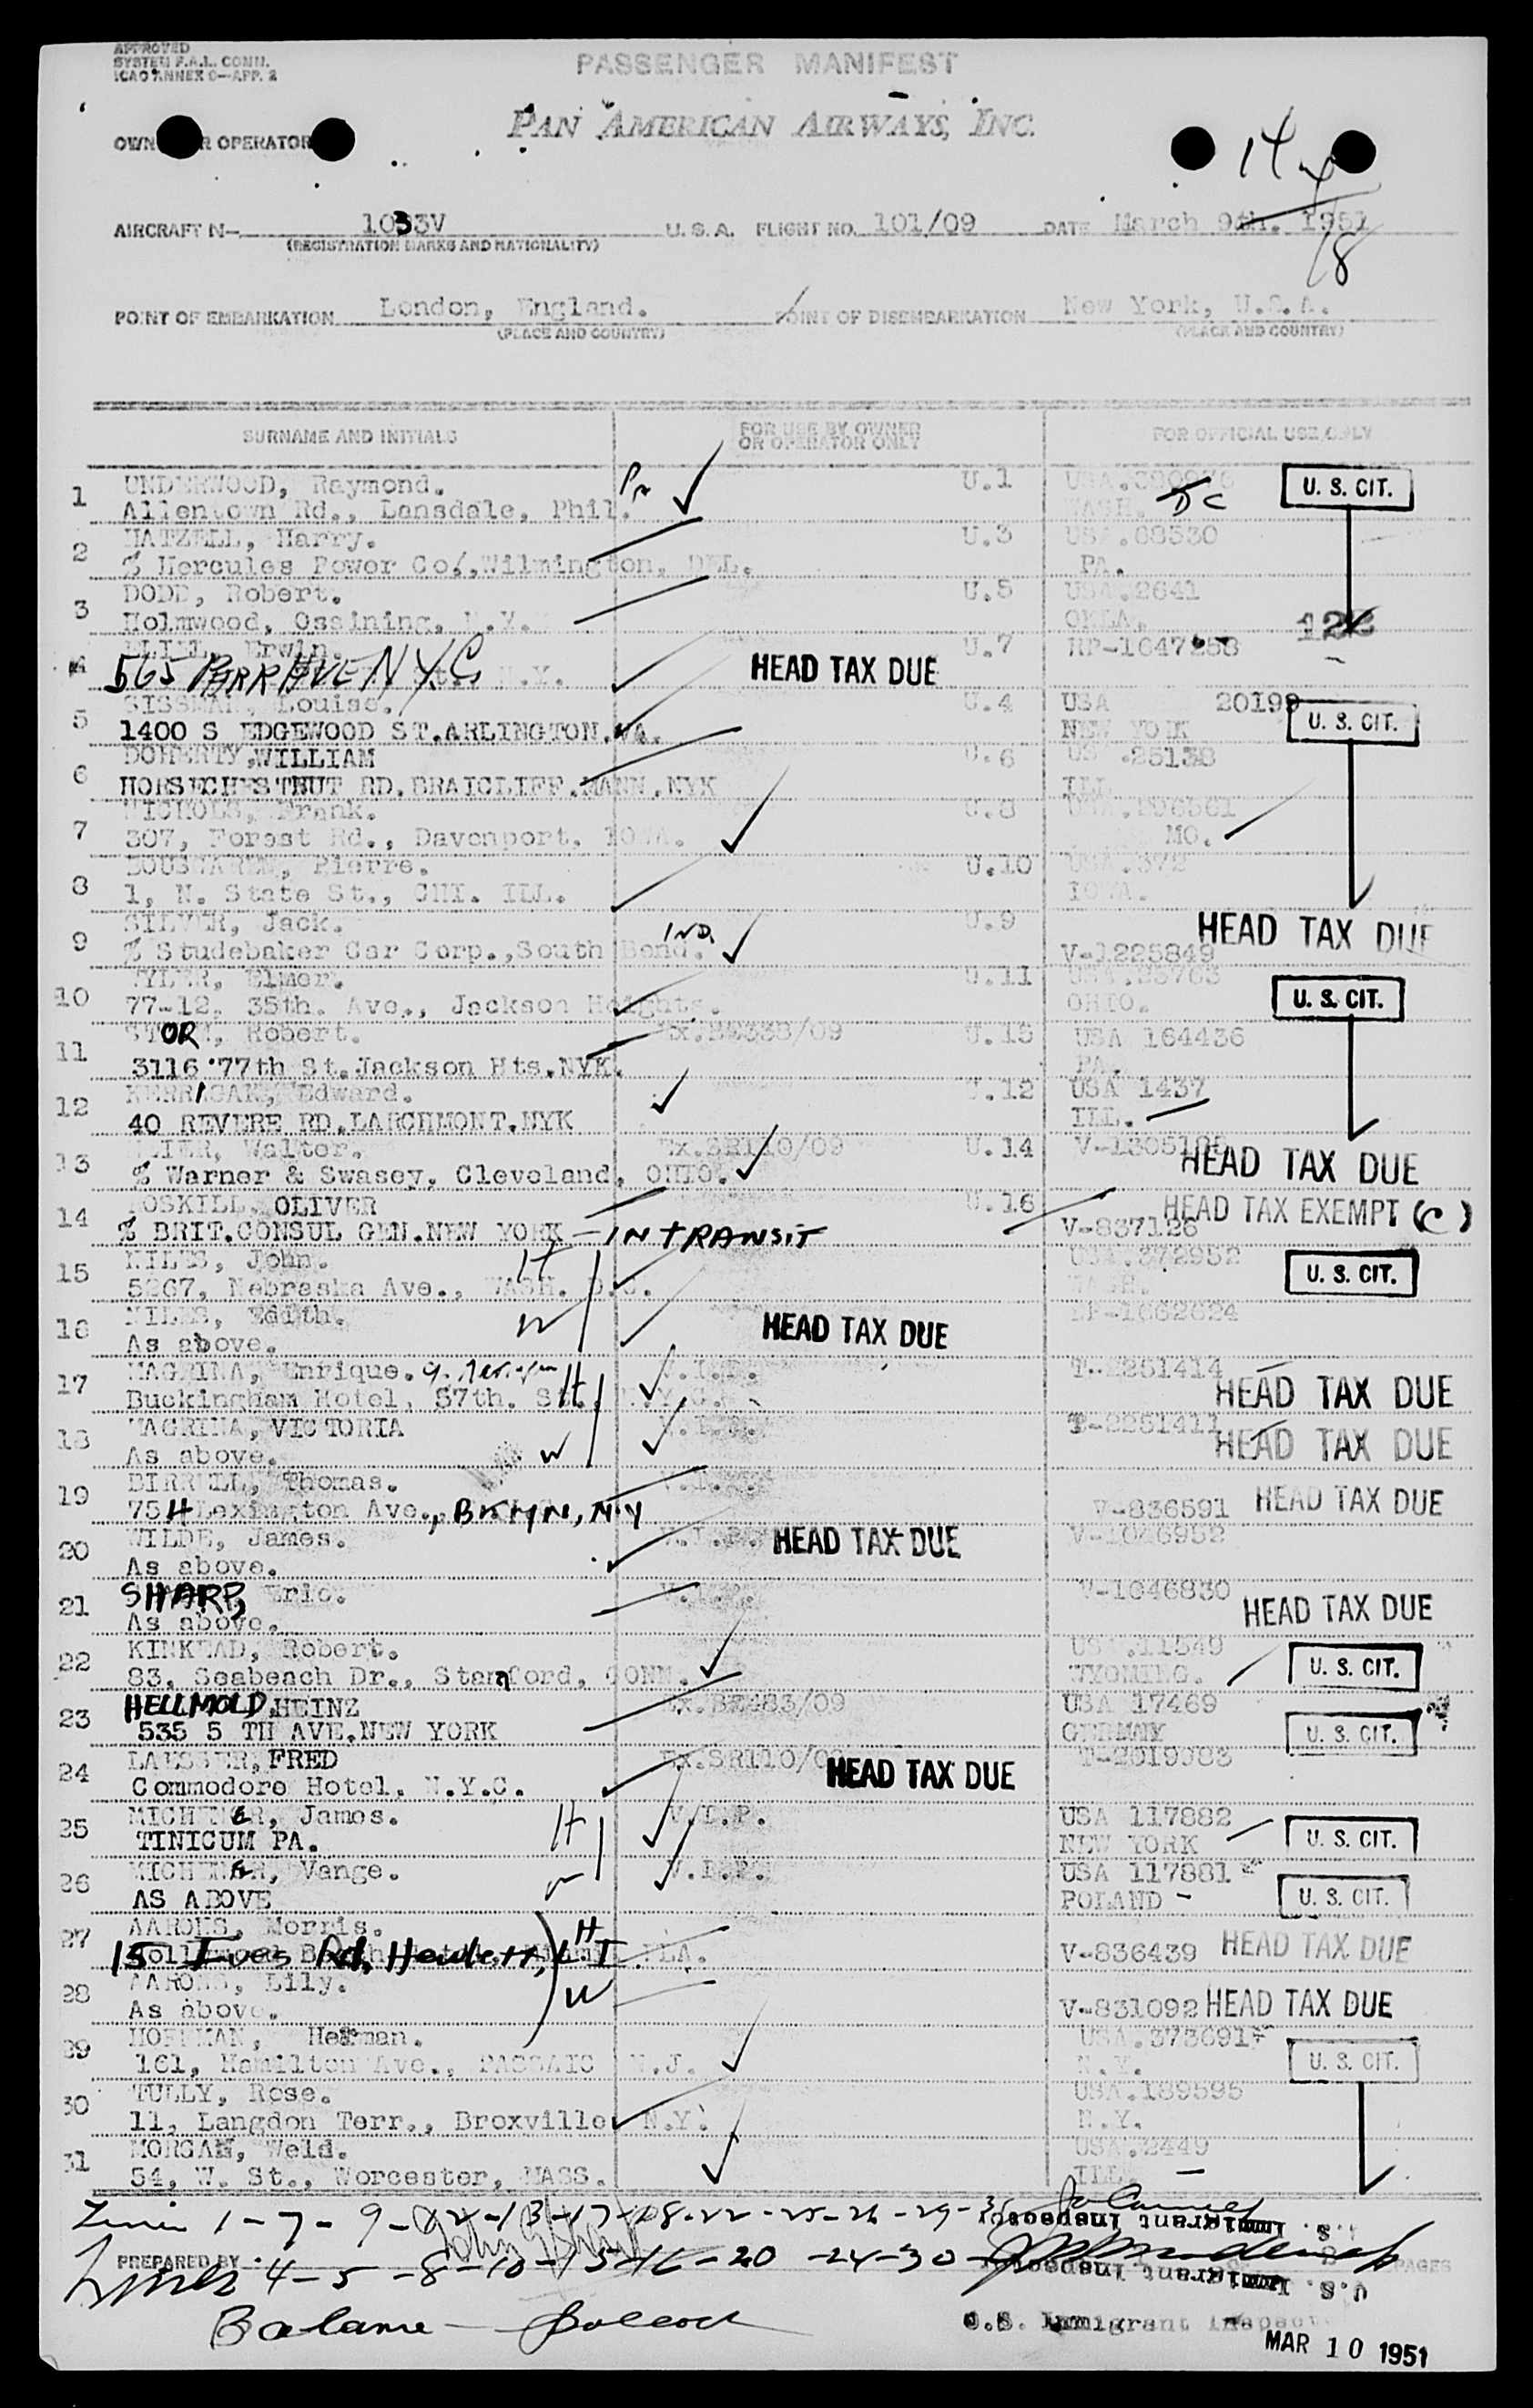 APPROVED
SYSTEM F.A.L. COMM.
ICAO ANNEX 9—APP. 2
PASSENGER MANIFEST
OWN R OPERATOR
PAN AMERICAN AIRWAYS, INC.
14
18
AIRCRAFT N— 1033V U.S.A. FLIGHT NO. 101/09 DATE March 9th. 1951
(REGISTRATION MARKS AND NATIONALITY)
POINT OF EMBARKATION London, England. POINT OF DISEMBARKATION New York, U.S.A.
(PLACE AND COUNTRY) (PLACE AND COUNTRY)
SURNAME AND INITIALS FOR USE BY OWNER OR OPERATOR ONLY FOR OFFICIAL USE ONLY
1 UNDERWOOD, Raymond. U.1 U. S. CIT.
Allentown Rd., Lansdale, Phil. Pa WASH. DC
2 HATZELL, Harry. U.3 USA.68530
% Hercules Power Co.,Wilmington, DEL. PA.
3 DODD, Robert. U.5 USA.2641
Holmwood, Ossining, N.Y. OKLA.
4 Erwin. U.7 RP-1647258
565 PARK AVE N.Y.C HEAD TAX DUE
5 SISSMAN, Louise. U.4 USA 20199 U. S. CIT.
1400 S EDGEWOOD ST.ARLINGTON.VA. NEW YORK
6 DOHERTY,WILLIAM U.6 US .25138
HORSECHESTNUT RD.BRAICLIFF.MANN.NYK ILL
7 NICHOLS, Frank. U.8
307, Forest Rd., Davenport, IOWA. MO.
8 Pierre. U.10 USA.372
1, N. State St., CHI. ILL. IOWA.
9 SILVER, Jack. U.9 HEAD TAX DUE
% Studebaker Car Corp.,South Bend. IND. V-1225849
10 TYLER, Elmer. U.11 USA.23763 U. S. CIT.
77-12, 35th. Ave., Jackson Heights. OHIO.
11 STORM, Robert. Ex.BE338/09 U.15 USA 164436
3116 77th St.Jackson Hts.NYK. PA.
12 KERRIGAN, Edward. U.12 USA 1437
40 REVERE RD.LARCHMONT.NYK ILL.
13 Walter. Ex.SR110/09 U.14 HEAD TAX DUE
% Warner & Swasey, Cleveland, OHIO.
14 OLIVER U.16 HEAD TAX EXEMPT (C)
% BRIT.CONSUL GEN.NEW YORK — IN TRANSIT V-837126
15 NILES, John. H USA.372952 U. S. CIT.
5267, Nebraska Ave., WASH. D.C. WASH.
16 NILES, Edith. W RP-1062624
As above. HEAD TAX DUE
17 MAGRINA, Enrique. H V.I.P. T-2251414
Buckingham Hotel, 57th. St. N.Y.C. HEAD TAX DUE
18 MAGRINA, VICTORIA V.I.P. T-2251411
As above. W HEAD TAX DUE
19 BIRRELL, Thomas. V.I.P.
75H Lexington Ave., BKLYN, N.Y V-836591 HEAD TAX DUE
20 WILDE, James. V.I.P. HEAD TAX DUE V-1046952
As above.
21 SHARP, Eric. V.I.P. V-1046830
As above. HEAD TAX DUE
22 KINKEAD, Robert. US .11549 U. S. CIT.
83, Seabeach Dr., Stamford, CONN. WYOMING.
23 HELLMOLD,HEINZ Ex.BE483/09 USA 17469
535 5 TH AVE.NEW YORK GERMANY U. S. CIT.
24 FRED Ex.SR110/09 HEAD TAX DUE T-2519983
Commodore Hotel, N.Y.C.
25 MICHENER, James. H V.I.P. USA 117882
TINICUM PA. NEW YORK U. S. CIT.
26 MICHENER, Vange. W V.I.P. USA 117881
AS ABOVE POLAND U. S. CIT.
27 AARONS, Morris. H
15 Ives Rd, Hewlett, L I FLA. V-836439 HEAD TAX DUE
28 AARONS, Lily. W
As above. V-831092 HEAD TAX DUE
29 HOFFMAN, Herman. USA.373691
161, Hamilton Ave., PASSAIC N.J. N.Y. U. S. CIT.
30 TULLY, Rose. USA.189595
11, Langdon Terr., Broxville N.Y. N.Y.
31 MORGAN, Weld. USA.2449
54, W. St., Worcester, MASS. ILL.
1-7-9-12-13-17-18-22-25-26-29-31
U.S. Immigrant Inspector
PREPARED BY 4-5-8-10-15-16-20-24-30 PAGES
U.S. Immigrant Inspector
Balance —
U.S. Immigrant Inspector
MAR 10 1951